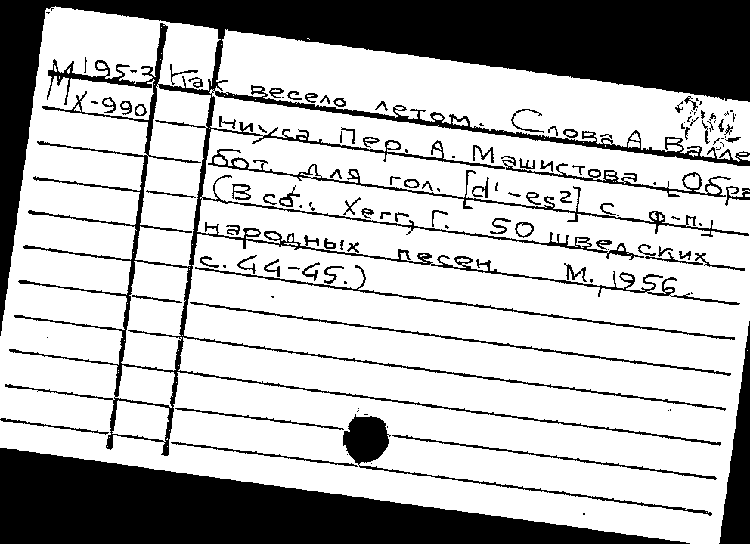 М 195-3 Как весело летом. Слова А. Валле
IX-990 ниуса. Пер. А. Машистова. [Обра
бот. для гол. [d¹-es²] с ф-п.]
(В сб.: Хегг, Г. 50 шведских
народных песен. М., 1956.
с. 44-45.)